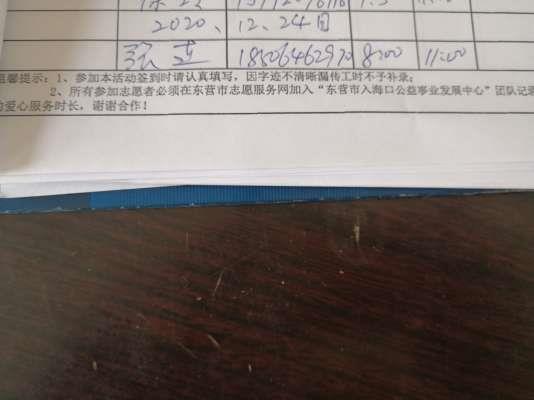 2020、12、24日
张 18506462970 8:00 11:00
温馨提示：1、参加本活动签到时请认真填写，因字迹不清晰漏传工时不予补录；
2、所有参加志愿者必须在东营市志愿服务网加入“东营市入海口公益事业发展中心”团队记录
的爱心服务时长，谢谢合作！